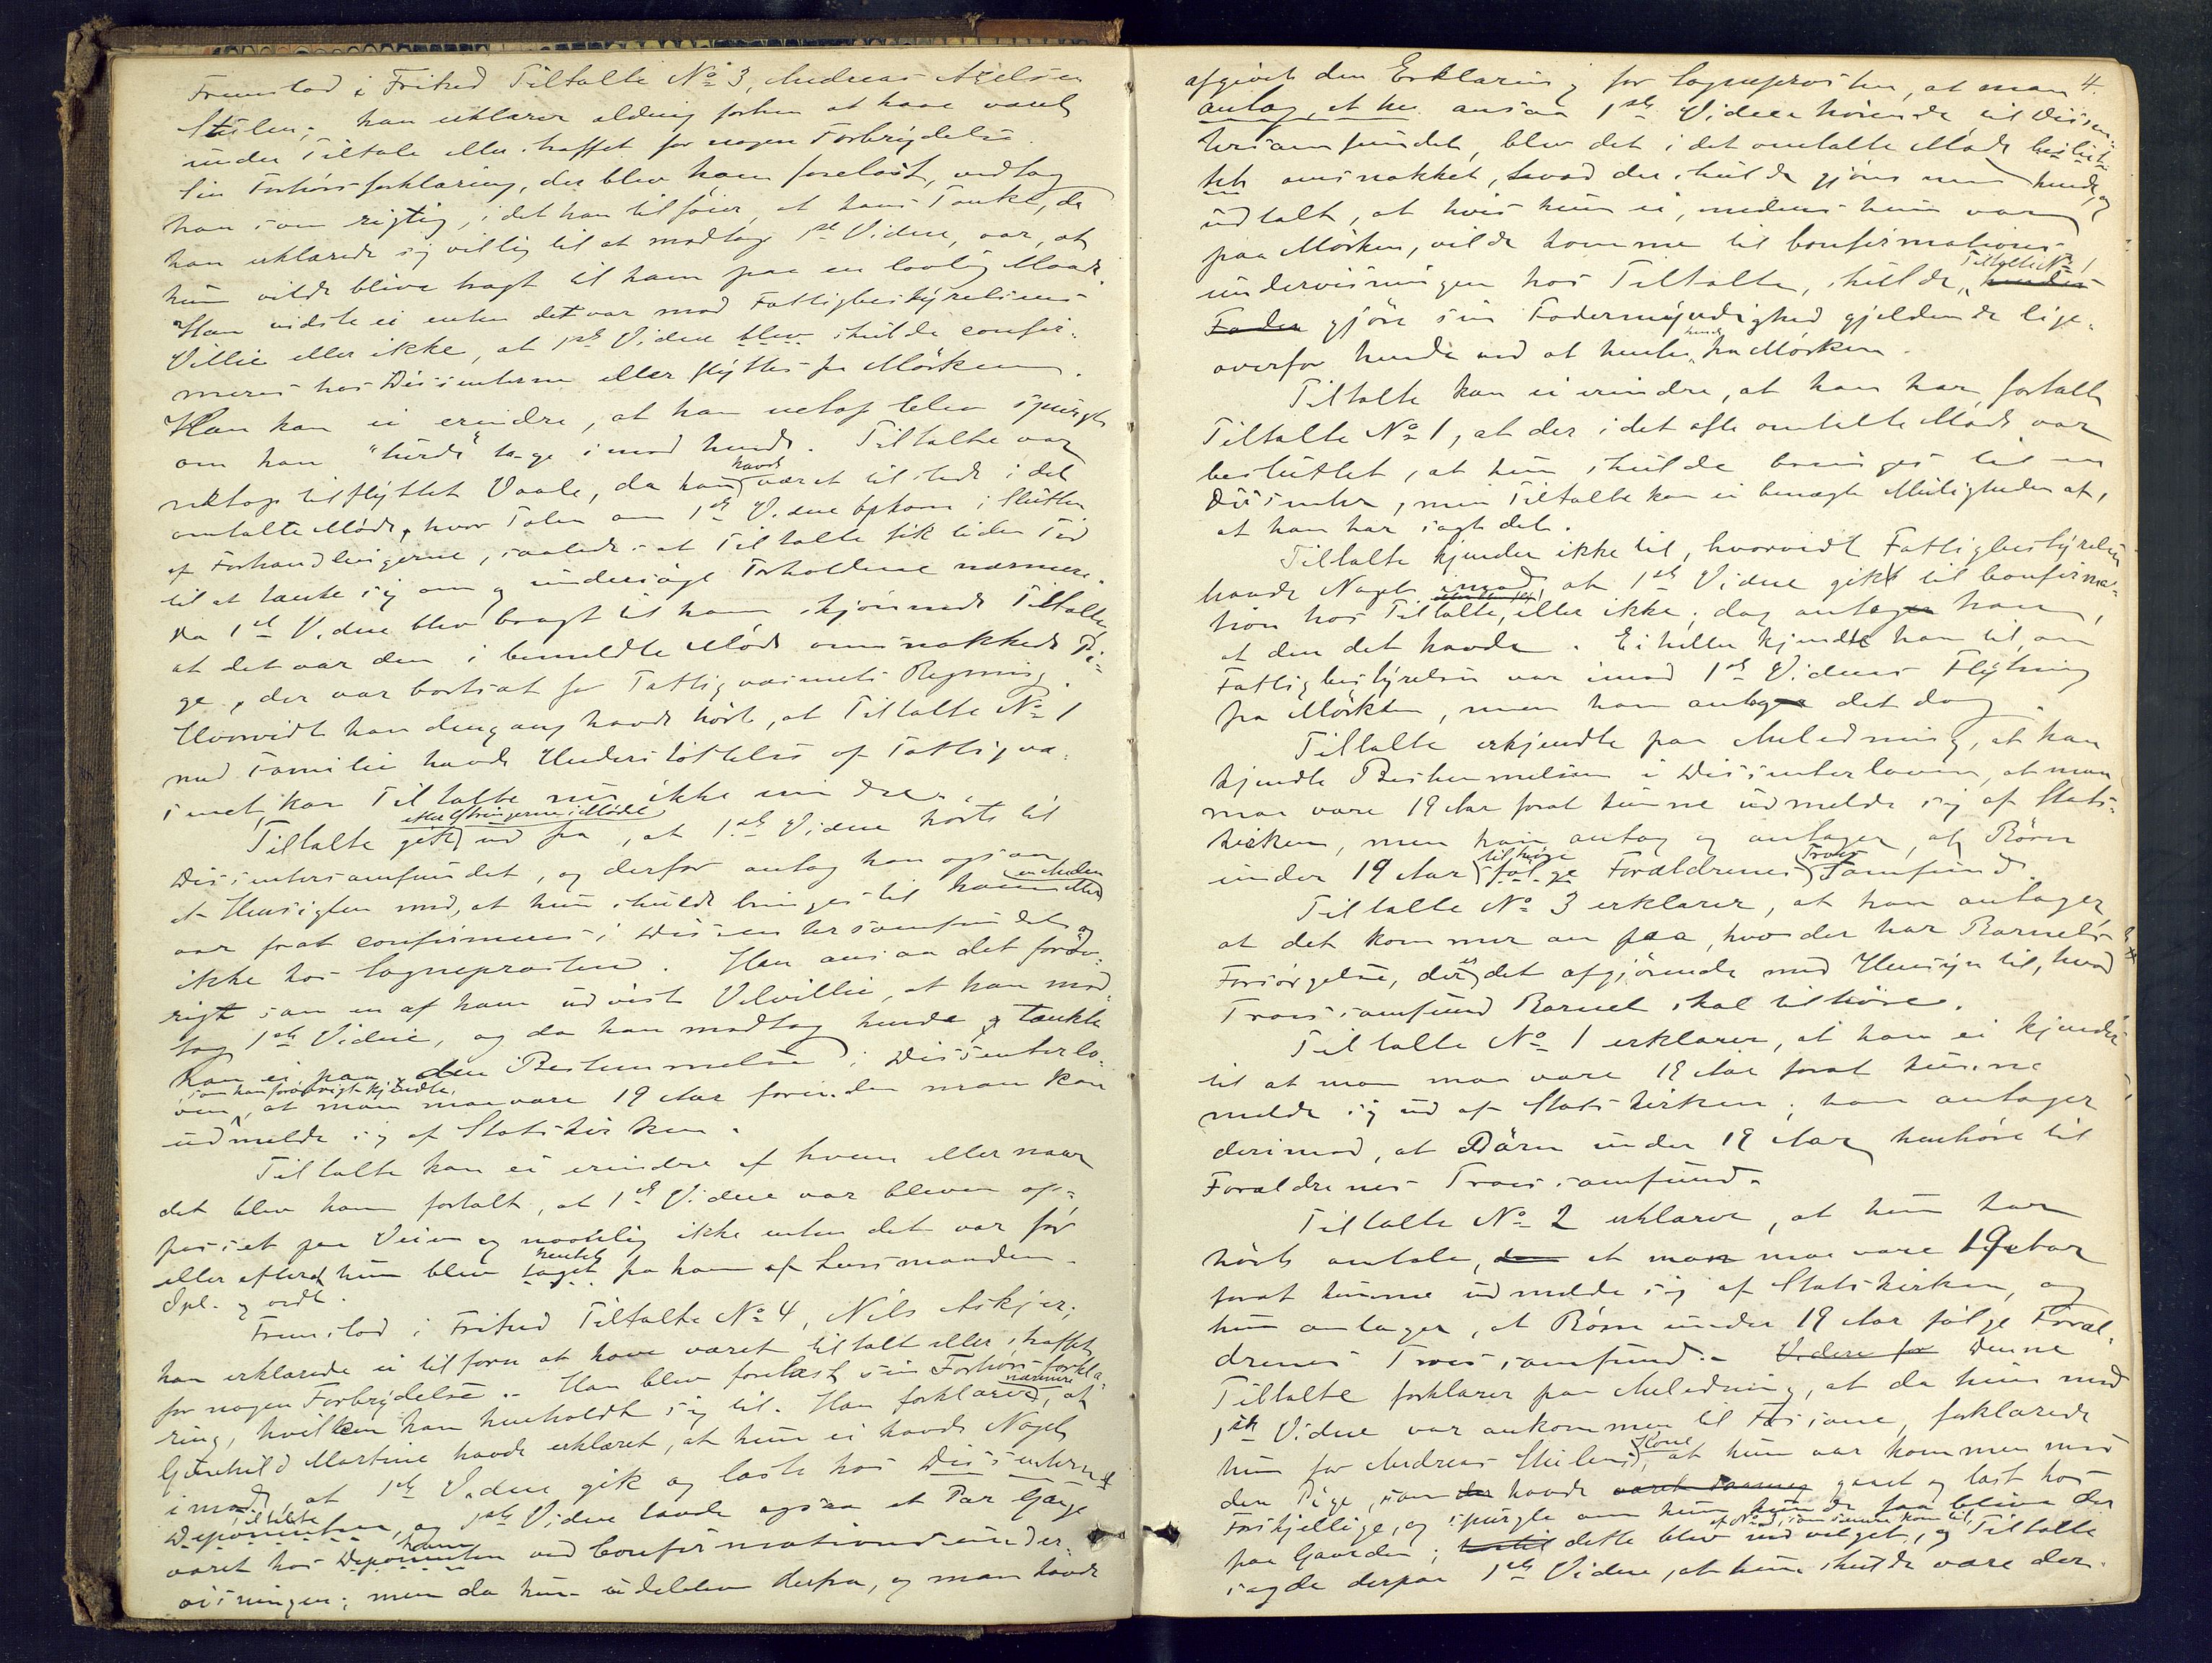 Fremstod i Frihed Tiltalte No 3, Andreas Axelsen
Stulen; han erklærer aldrig forhen at have været
under Tiltale eller straffet for nogen Forbrydelse.
Sin Forhørsforklaring, der blev ham forelæst, vedtog
han som rigtig, idet han tilføier, at hans Tanke, da
han erklærede sig villig til at modtage 1ste Vidne, var, at
hun vilde blive bragt til ham paa en lovlig Maade.
Han vidste ei enten det var mod Fattigbestyrelsens
Villie eller ikke, at 1ste Vidne blev skulde confir-
meres hos Dissenterne eller flyttes fra Mörken.
Han kan ei erindre, at han netop blev spurgt
om han "turde" tage imod hende. Tiltalte var
netop tilflyttet Vaale, da han havde været tilstede i det
omtalte Möde, hvor Talen om 1ste Vidne opkom i Slutten
af Forhandlingerne, saaledes at Tiltalte fik liden Tid
til at tænke sig om og undersöge Forholdene nærmere.
Da 1ste Vidne blev bragt til ham skjönnede Tiltalte,
at det var den i bemeldte Möde omsnakkede Pi-
ge, der var bortsat for Fattigvæsenets Regning.
Hvorvidt han dengang havde hört, at Tiltalte No 1
med Familie havde Understöttelse af Fattigvæ-
senet, kan Tiltalte nu ikke erindre.
Tiltalte gik efter Ytringerne i Mödet ud fra, at 1ste Vidne hörte til
Dissentersamfundet, og derfor antog han ogsaa
at Hensigten med, at hun skulde bringes til ham eller en Anden
var forat confirmeres i Dissentersamfundet og
ikke hos Sogneprosten. Han ansaa det forö-
rigt som en af ham udvist Velvillie, at han mod-
tog 1ste Vidne, og da han modtog hende tænkte
han ei paa den Bestemmelse i Dissenterlo-
ven, som han forövrigt kjendte, at man maa være 19 Aar forinden man kan
udmelde sig af Statskirken.
Tiltalte kan ei erindre af hvem eller naar
det blev ham fortalt, at 1ste Vidne var bleven op-
passet paa Veien og navnlig ikke enten det var för
eller efterat hun blev taget hentet fra ham af Lensmanden.
Opl. og vedt.
Fremstod i Frihed Tiltalte No 4, Nils Askjer;
han erklærede ei tilforn at have været tiltalt eller straffet
for nogen Forbrydelse. Han blev forelæst sin Forhörsforkla-
ring, hvilken han henholdt sig til. Han forklarer nærmere, at
Gunhild Martine havde erklæret, at hun ei havde Noget
imod, at 1ste Vidne gik og læste hos Dissenterne
Deponenten Tiltalte, og 1ste Vidne havde ogsaa et Par Gange
været hos Deponenten ham ved Confirmationsunder-
visningen; men da hun udeblev derfra, og man havde
4.
afgivet den Erklæring for Sogneprosten, at man
antog, at han ansaa 1ste Vidne hörende til Dissen-
tersamfundet, blev det i det omtalte Möde beslut-
tet omsnakket, hvad der skulde gjöres med hende, og
udtalt, at hvis hun ei, medens hun var
paa Mörken, vilde komme til Confirmations-
undervisningen hos Tiltalte, skulde Tiltalte No 1 hendes
Fader gjöre sin Fadermyndighed gjeldende lige-
overfor hende ved at hente hende fra Mörken.
Tiltalte kan ei erindre, at han har fortalt
Tiltalte No 1, at der i det ofte omtalte Möde var
besluttet, at hun skulde bringes til en
Dissenter, men Tiltalte kan ei benægte Muligheden af,
at han har sagt det.
Tiltalte kjender ikke til, hvorvidt Fattigbestyrelsen
havde Noget imod at 1ste Vidne gik til Confirma-
tion hos Tiltalte, eller ikke; dog antager han,
at den det havde. Ei heller kjendte han til, om
Fattigbestyrelsen var imod 1ste Vidnes Flytning
fra Mörken, men han antager det dog.
Tiltalte erkjendte paa Anledning, at han
kjendte Bestemmelsen i Dissenterloven, at man
maa være 19 Aar forat kunne udmelde sig af Stats-
kirken, men han antog og antager, at Börn
under 19 Aar fölge tilhöre Forældrenes Troes Samfund.
Tiltalte No 3 erklærer, at han antager
at det kommer an paa, hvo der har Barnets
Forsörgelse, der er det afgjörende med Hensyn til, hvad
Troessamfund Barnet skal tilhöre.
Tiltalte No 1 erklærer, at han ei kjendte
til at man maa være 19 Aar forat kunne
melde sig ud af Statskirken; han antager
derimod, at Börn under 19 Aar henhöre til
Forældrenes Troessamfund.
Tiltalte No 2 erklærer, at hun har
hört omtale, at man maa være 19 Aar
forat kunne udmelde sig af Statskirken, og
hun antager, at Börn under 19 Aar fölge Foræl-
drenes Troessamfund. Videre for Denne
Tiltalte forklarer paa Anledning, at da hun med
1ste Vidne var ankommen til Fossane, forklarede
hun for Andreas Stulens Kone, at hun var kommen med
den Pige, som der havde været gaaet og læst hos
Forskjellige, og spurgte om hun kunde faa blive der
paa Gaarden; dette blev af No 3, som senere kom til, indvilget, og Tiltalte
sagde derpaa 1ste Vidne, at hun skulde være der.